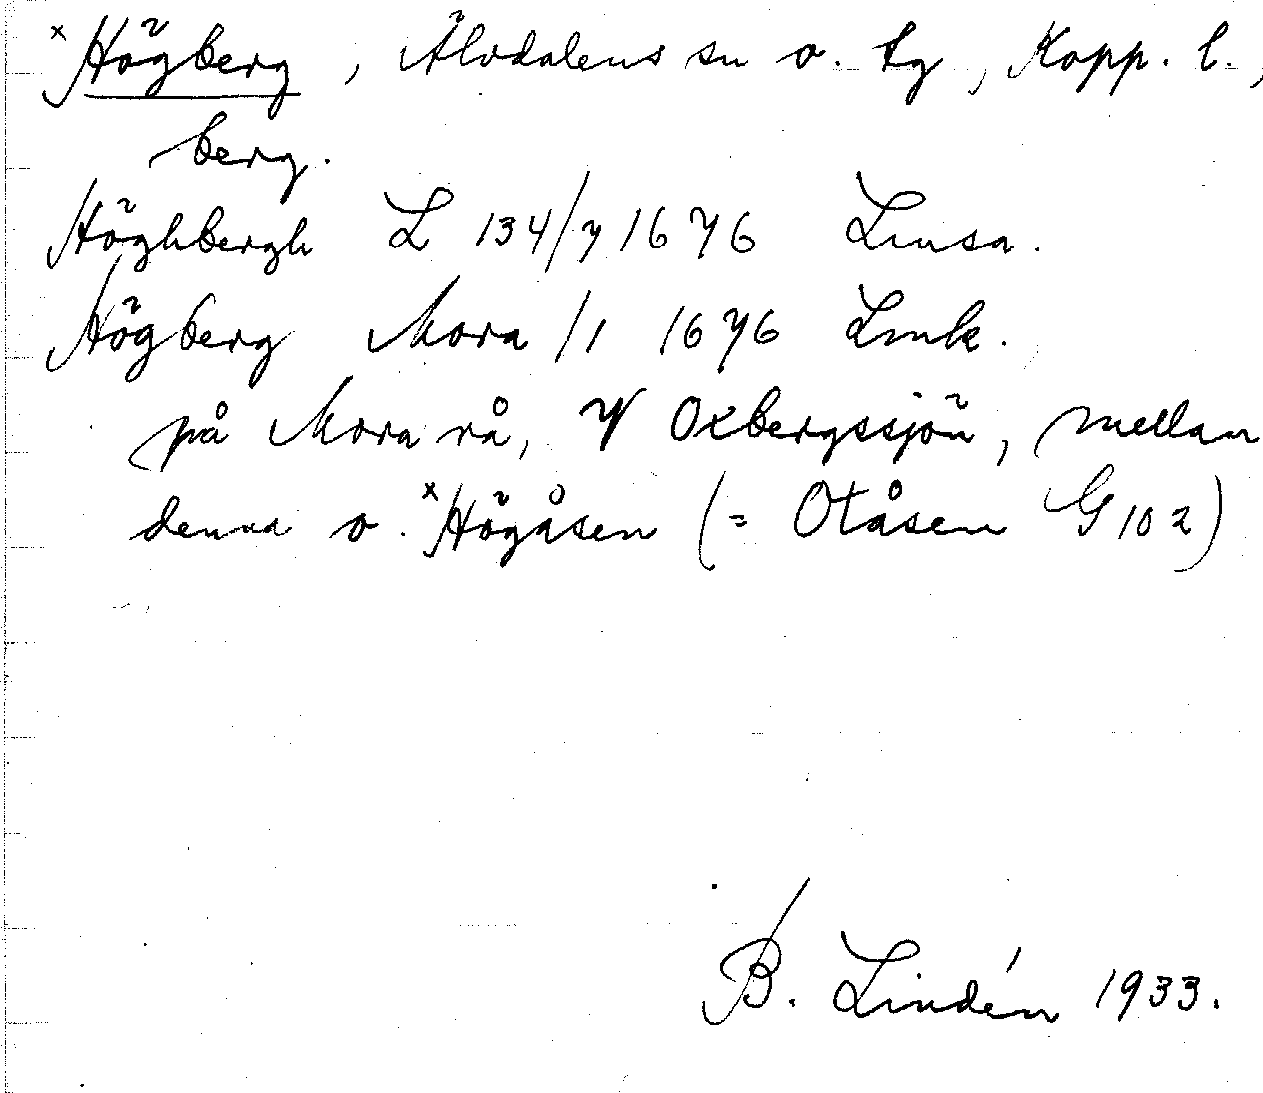 x Högberg, Älvdalens sn o. tg, Kopp. l.,
berg.
Höghbergh L 134/7 1676 Lmsa.
Högberg Mora /1 1676 Lmk.
på Mora rå, V Oxbergssjön, mellan
denna o. x Högåsen (= Otåsen G 102)
B. Lindén 1933.